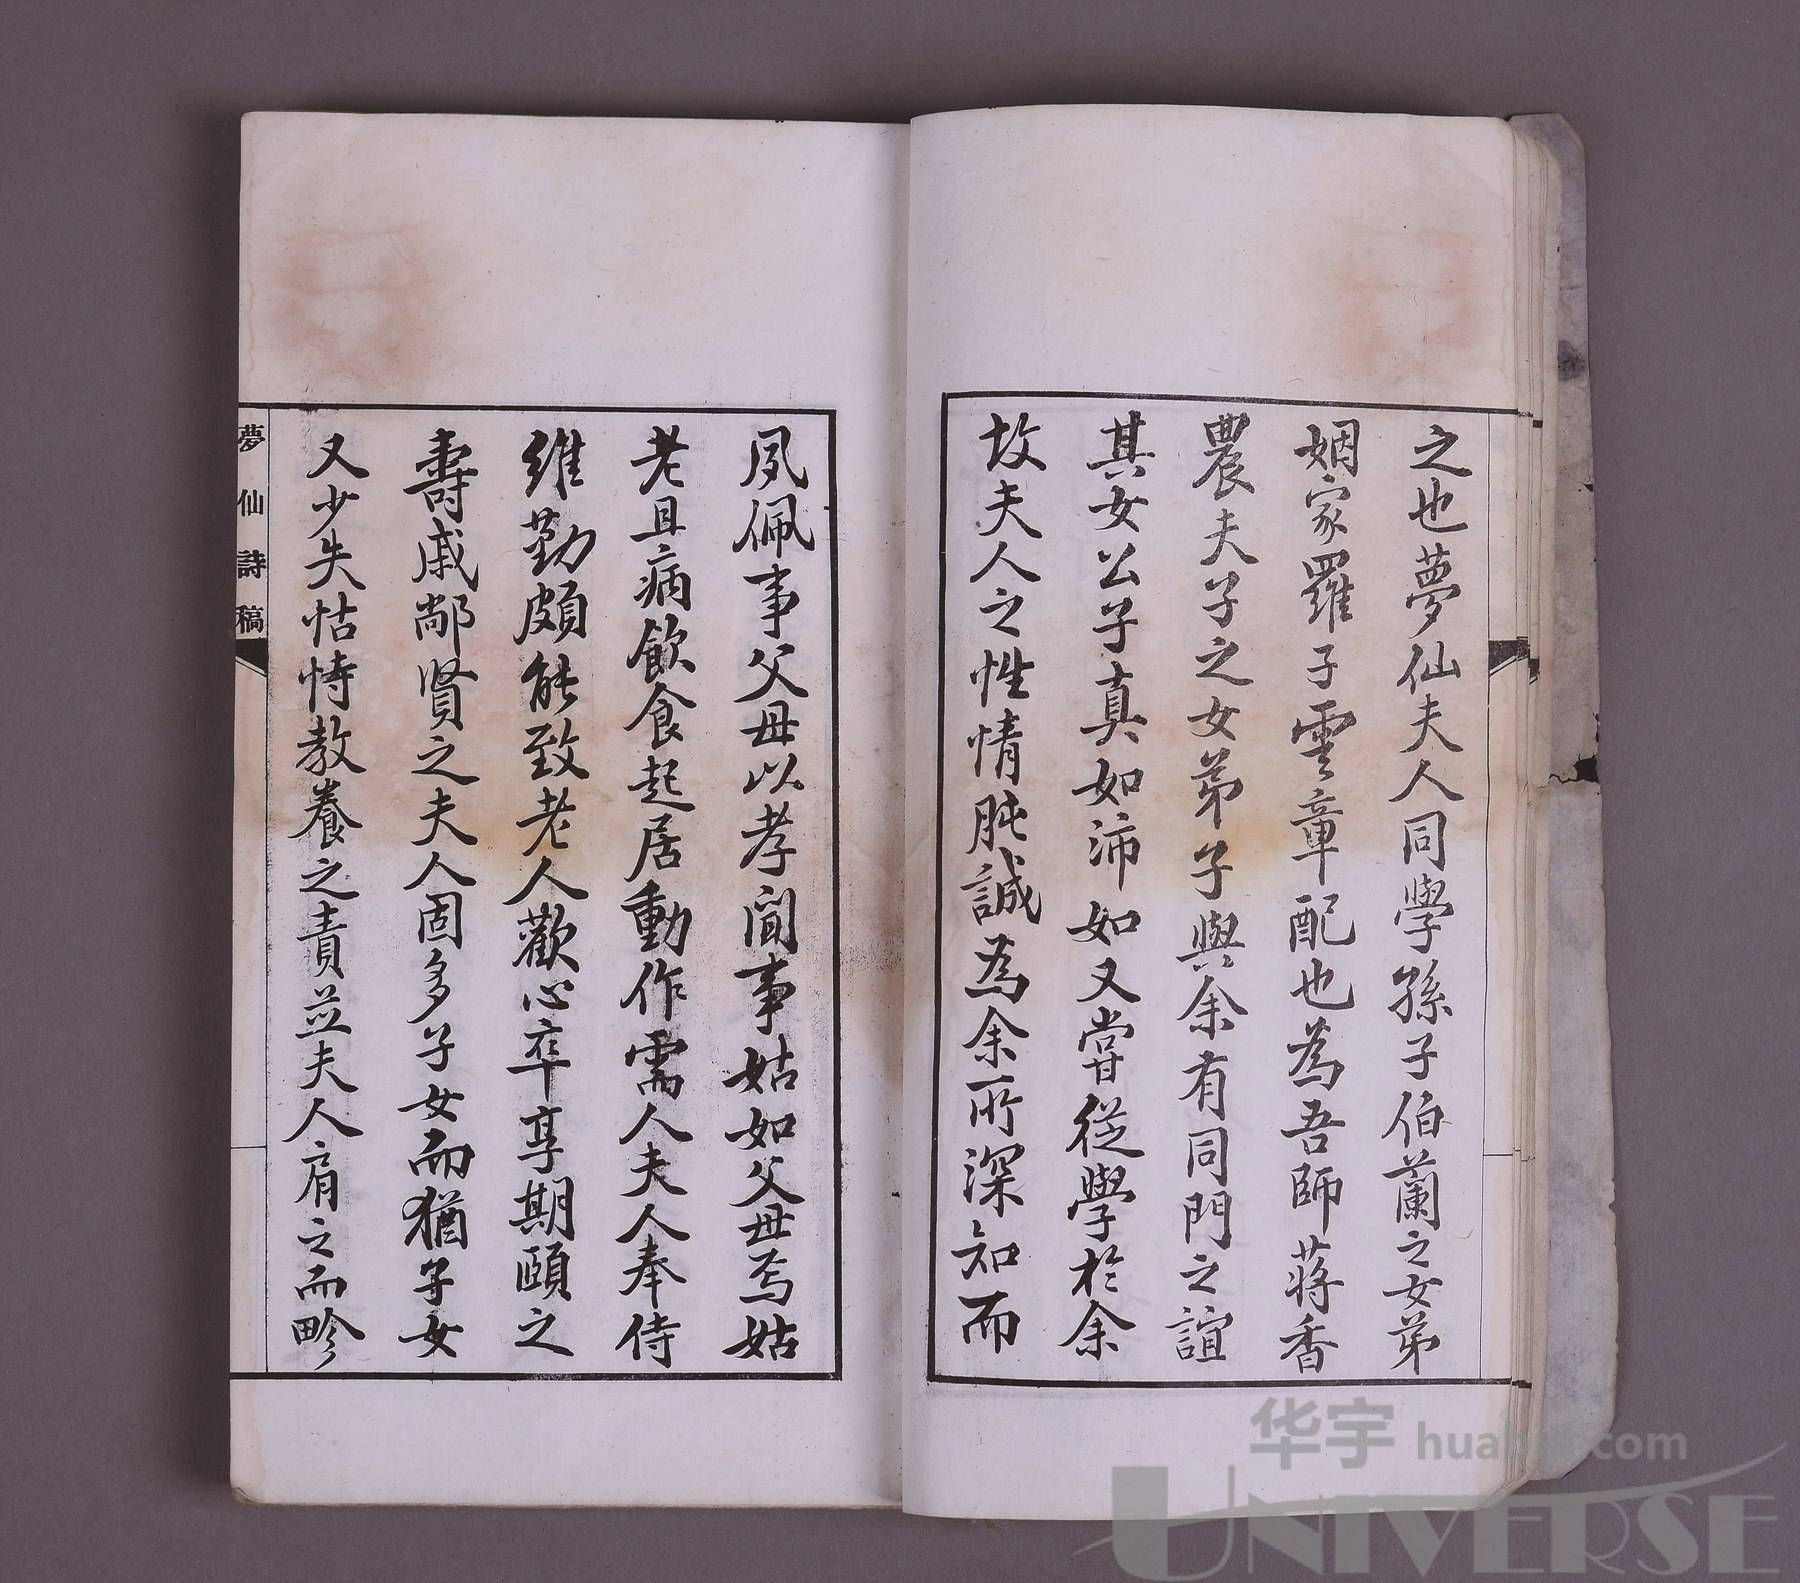 之也夢仙夫人同學孫子伯蘭之女弟
姻家羅子雲章配也為吾師蔣香
農夫子之女弟子與余有同門之誼
其女公子真如沛如又嘗從學於余
故夫人之性情肫誠為余所深知而
夙佩事父母以孝聞事姑如父母焉姑
老且病飲食起居動作需人夫人奉侍
維勤頗能致老人歡心卒享期頤之
壽戚鄰賢之夫人固多子女而猶子女
又少失怙恃教養之責並夫人肩之而畛
夢仙詩稿
华宇 hua .com
UNIVERSE